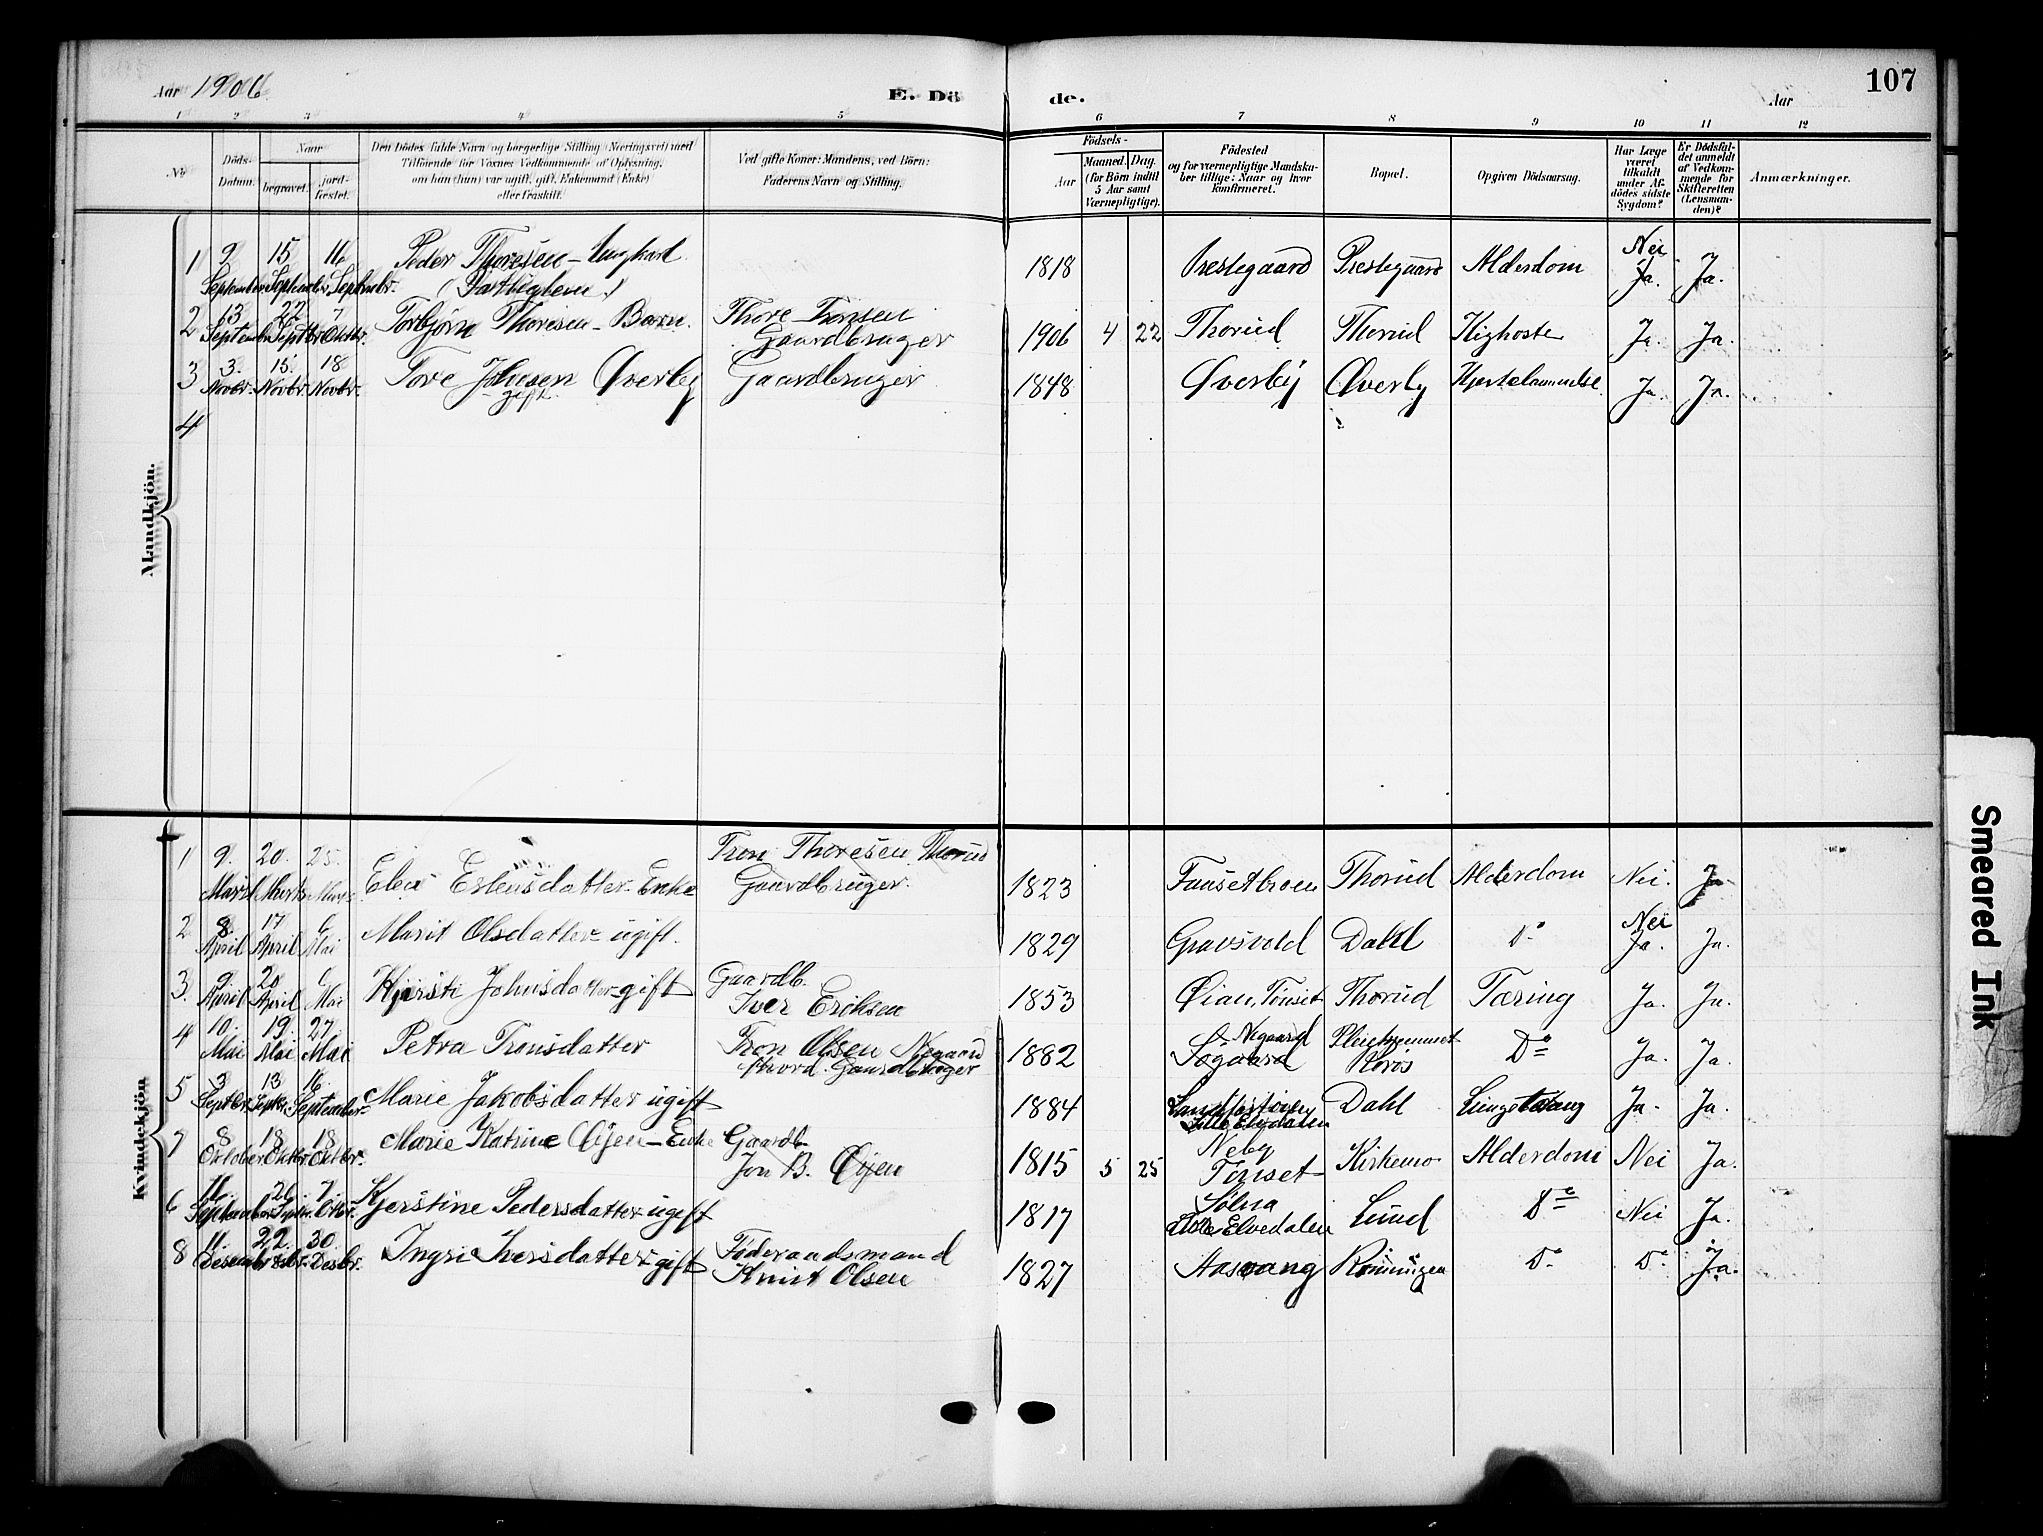 107
Aar 1906
E. Dö de.
Aar
1 2 3 4 5 6 7 8 9 10 11 12
No
Döds-Datum.
Naar
begravet.
jord-fæstet.
Den Dödes fulde Navn og borgerlige Stilling (Næringsvei) med
Tilföiende for Voxnes Vedkommende af Oplysning,
om han (hun) var ugift, gift, Enkemand (Enke)
eller fraskilt.
Ved gifte Koner: Mandens, ved Börn:
Faderens Navn og Stilling.
Födsels-
Aar
Maaned. Dag.
(for Börn indtil
5 Aar samt
Værnepligtige).
Födested
og for værnepligtige Mandska-
ber tillige: Naar og hvor
konfirmeret.
Bopæl.
Opgiven Dödsaarsag.
Har Læge
været
tilkaldt
under Af-
dödes sidste
Sygdom?
Er Dödsfal-
det anmeldt
af Vedkom-
mende for
Skifteretten
(Lensman-
den)?
Anmærkninger.
Mandkjön.
1 9 September 15 September 16 Septembr. Peder Thoresen - Ungkarl 1818 Prestegaard Prestegaard Alderdom Nei Ja. Ja.
2 13 September 22 Septbr 7 Oktbr. Torbjörn Thoresen - Barn. Thore Tronsen Gaardbruger 1906 4 22 Thorud Thorud Kighoste Ja. Ja.
3 3. Novbr. 15. Novbr. 18 Novbr. Tore Johnsen Øverby gift. Gaardbruger 1848 Øverby Øverby Hjertelammelse Ja. Ja.
4
Kvindekjön
1 9. Marts 20. Marts 25. Marts Elen Estensdatter - Enke Tron Thoresen Thorud Gaardbruger. 1823 Fausetmoen Thorud Alderdom Nei. Ja
2 8. April 17 April 6 Mai Marit Olsdatter ugift. 1829 Grausvold Dahl Do. Nei Ja. Ja.
3. 9 April 20 April 6 Mai Kjersti Johnsdatter - gift Gaardb. Iver Eriksen 1853 Øian, Tönset Thorud Tæring Ja. Ja.
4 10. Mai 19. Mai 27. Mai Petra Tronsdatter Tron Olsen Negaard Gaardbruger 1882 Negaard Söguard Pleiehjemmet Röros Do Ja. Ja.
5 3 Septbr. 13 Septbr. 16. September Marie Jakobsdatter ugift 1884 Lille Elvdalen Dahl Lungetæring Ja. Ja.
7 8 Oktober 18 Oktbr 18 Oktbr. Marie Katrine Øien - Enke Gaardb. Jon B. Øien 1815 5 25 Neby Tönset Kirkemo Alderdom Nei Ja.
6 11. September 26 7. Oktbr. Kjerstine Pedersdatter ugift 1817 Sölna Lille Elvedalen Lund Do Nei Ja.
8 11. Desembr 22. Desbr. 30. Desbr. Ingri Iversdatter gift Föderaadsmand Knut Olsen 1827 Aasvang Rönningen Do. Do. Ja.
Smeared Ink